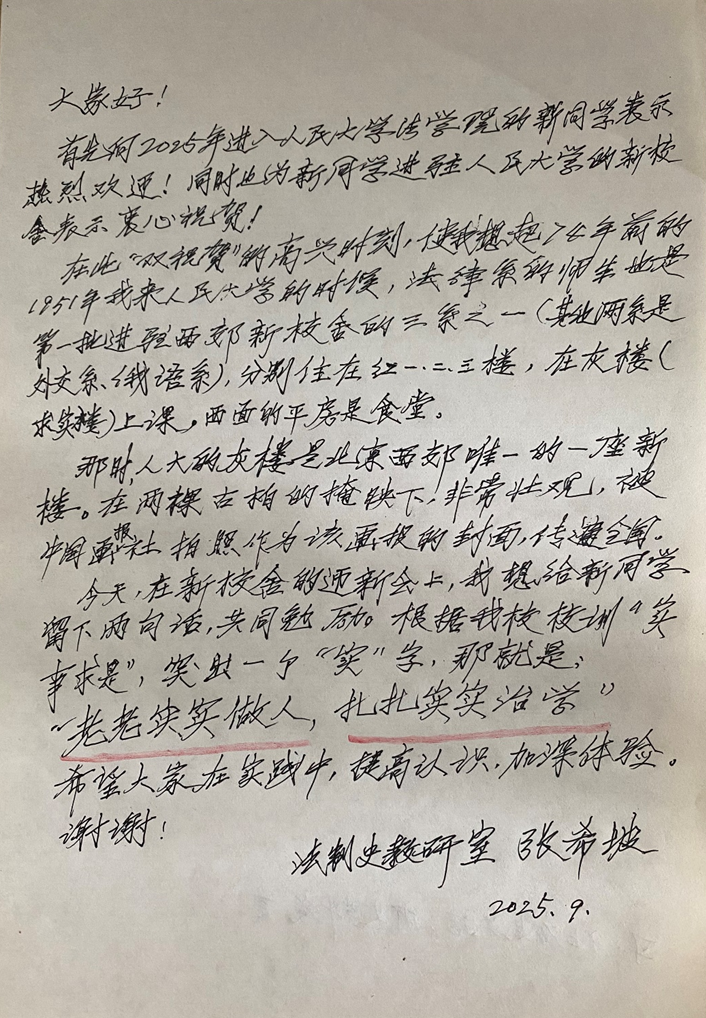 大家好！
首先向2025年进入人民大学法学院的新同学表示
热烈欢迎！同时也为新同学进驻人民大学的新校
舍表示衷心祝贺！
在此“双祝贺”的高兴时刻，使我想起74年前的
1951年我来人民大学的时候，法律系的师生也是
第一批进驻西郊新校舍的三系之一（其他两系是
外交系、俄语系），分别住在红一.二.三楼，在灰楼（
求实楼）上课。西面的平房是食堂。
那时，人大的灰楼是北京西郊唯一的一座新
楼。在两棵古柏的掩映下，非常壮观，被
中国画报社拍照作为该画报的封面，传遍全国。
今天，在新校舍的迎新会上，我想给新同学
留下两句话，共同勉励。根据我校校训“实
事求是”，突出一个“实”字，那就是：
“老老实实做人，扎扎实实治学”
希望大家在实践中，提高认识，加深体验。
谢谢！
法制史教研室 张希坡
2025.9.